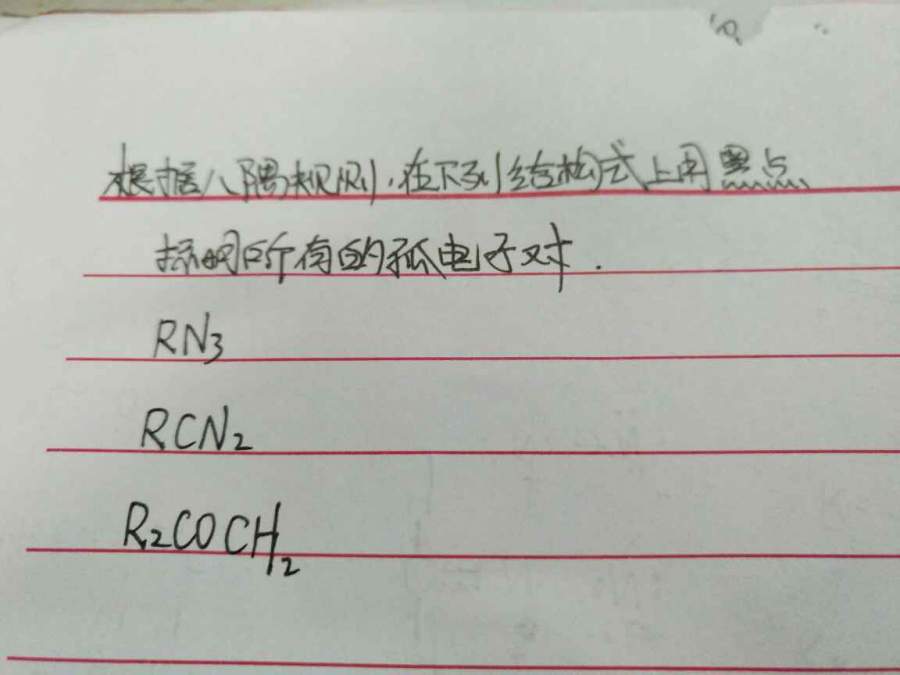 根据八隅规则，在下列结构式上用黑点
标明所有的孤电子对．
RN₃
RCN₂
R₂COCH₂